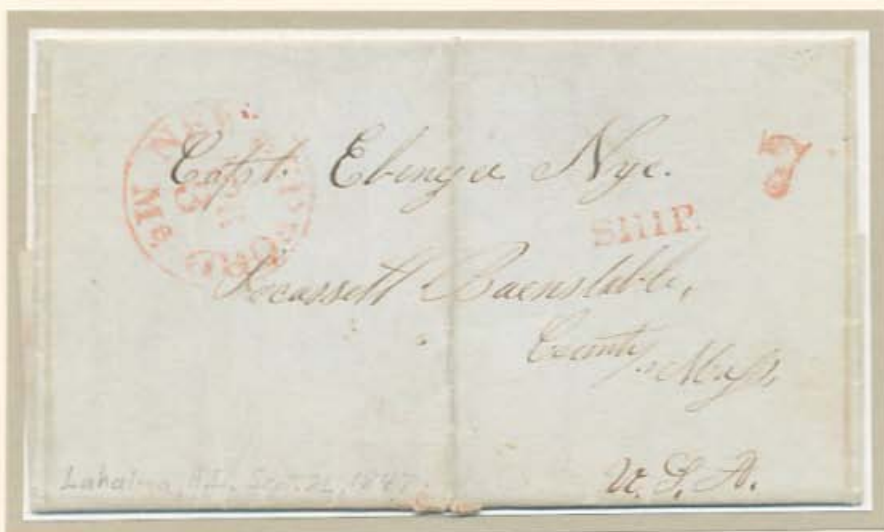 Capt. Ebenezer Nye.
7
SHIP.
Pocassett Barnstable,
County, Mass,
U. S. A.
Lahaina, H.I. Sept. 21, 1847.